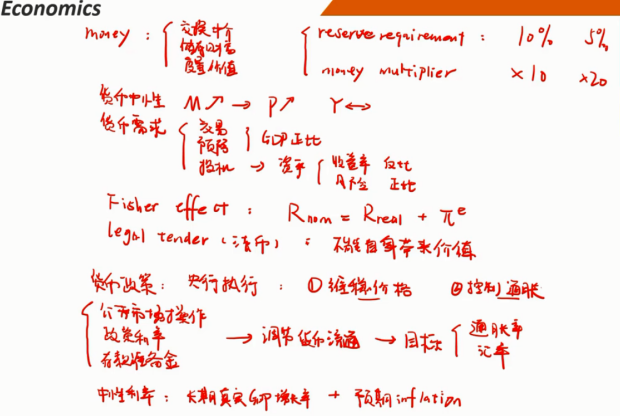 Economics
money : { 交换中介 { reserve requirement : 10% 5%
储存价值 money multiplier ×10 ×20
度量价值
货币中性 M↗ → P↗ Y↔
货币需求 { 交易 } GDP 正比
预防
投机 → 资产 { 收益率 反比
风险 正比
Fisher effect : Rnom = Rreal + πe
legal tender (法币) : 不能自身带来价值
货币政策 : 央行执行 : ① 维稳价格 ② 控制通胀
{ 公开市场操作
政策利率 → 调节货币流通 → 目标 { 通胀率
存款准备金 汇率
中性利率 : 长期真实GDP增长率 + 预期inflation